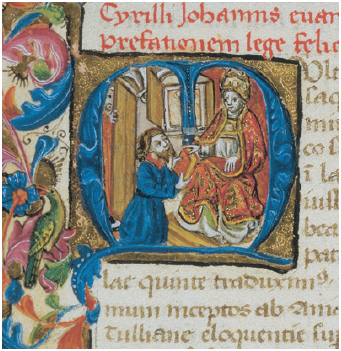 Cyrilli Johannis euan
prefationem lege felic
M Ole
saq
mu
co s
i la
uiss
bea
pat
lac quinte traduxeris
mum inceptos ab Ama
Tulliane eloquentie sup